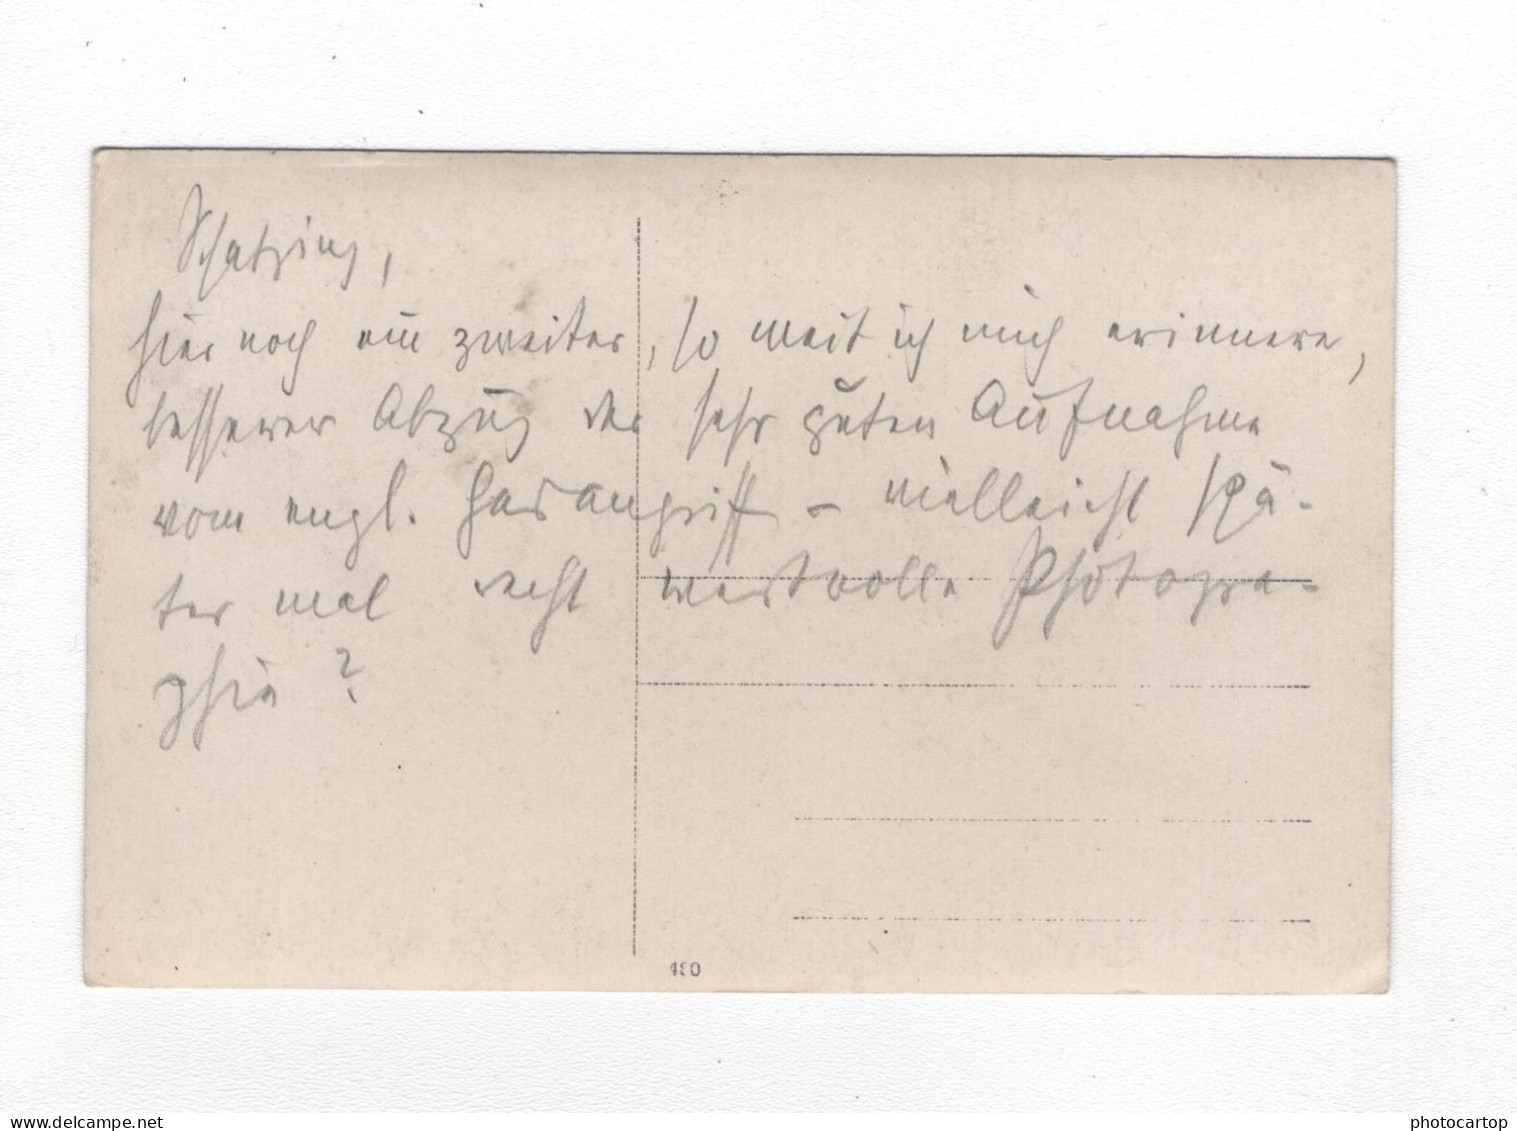 Schatzing,
hier noch ein zweiter, so weit ich mich erinnere,
besserer Abzug der sehr guten Aufnahme
vom engl. Gasangriff – vielleicht spä-
ter mal recht wertvolle Photogra-
phie?
480
photocartop